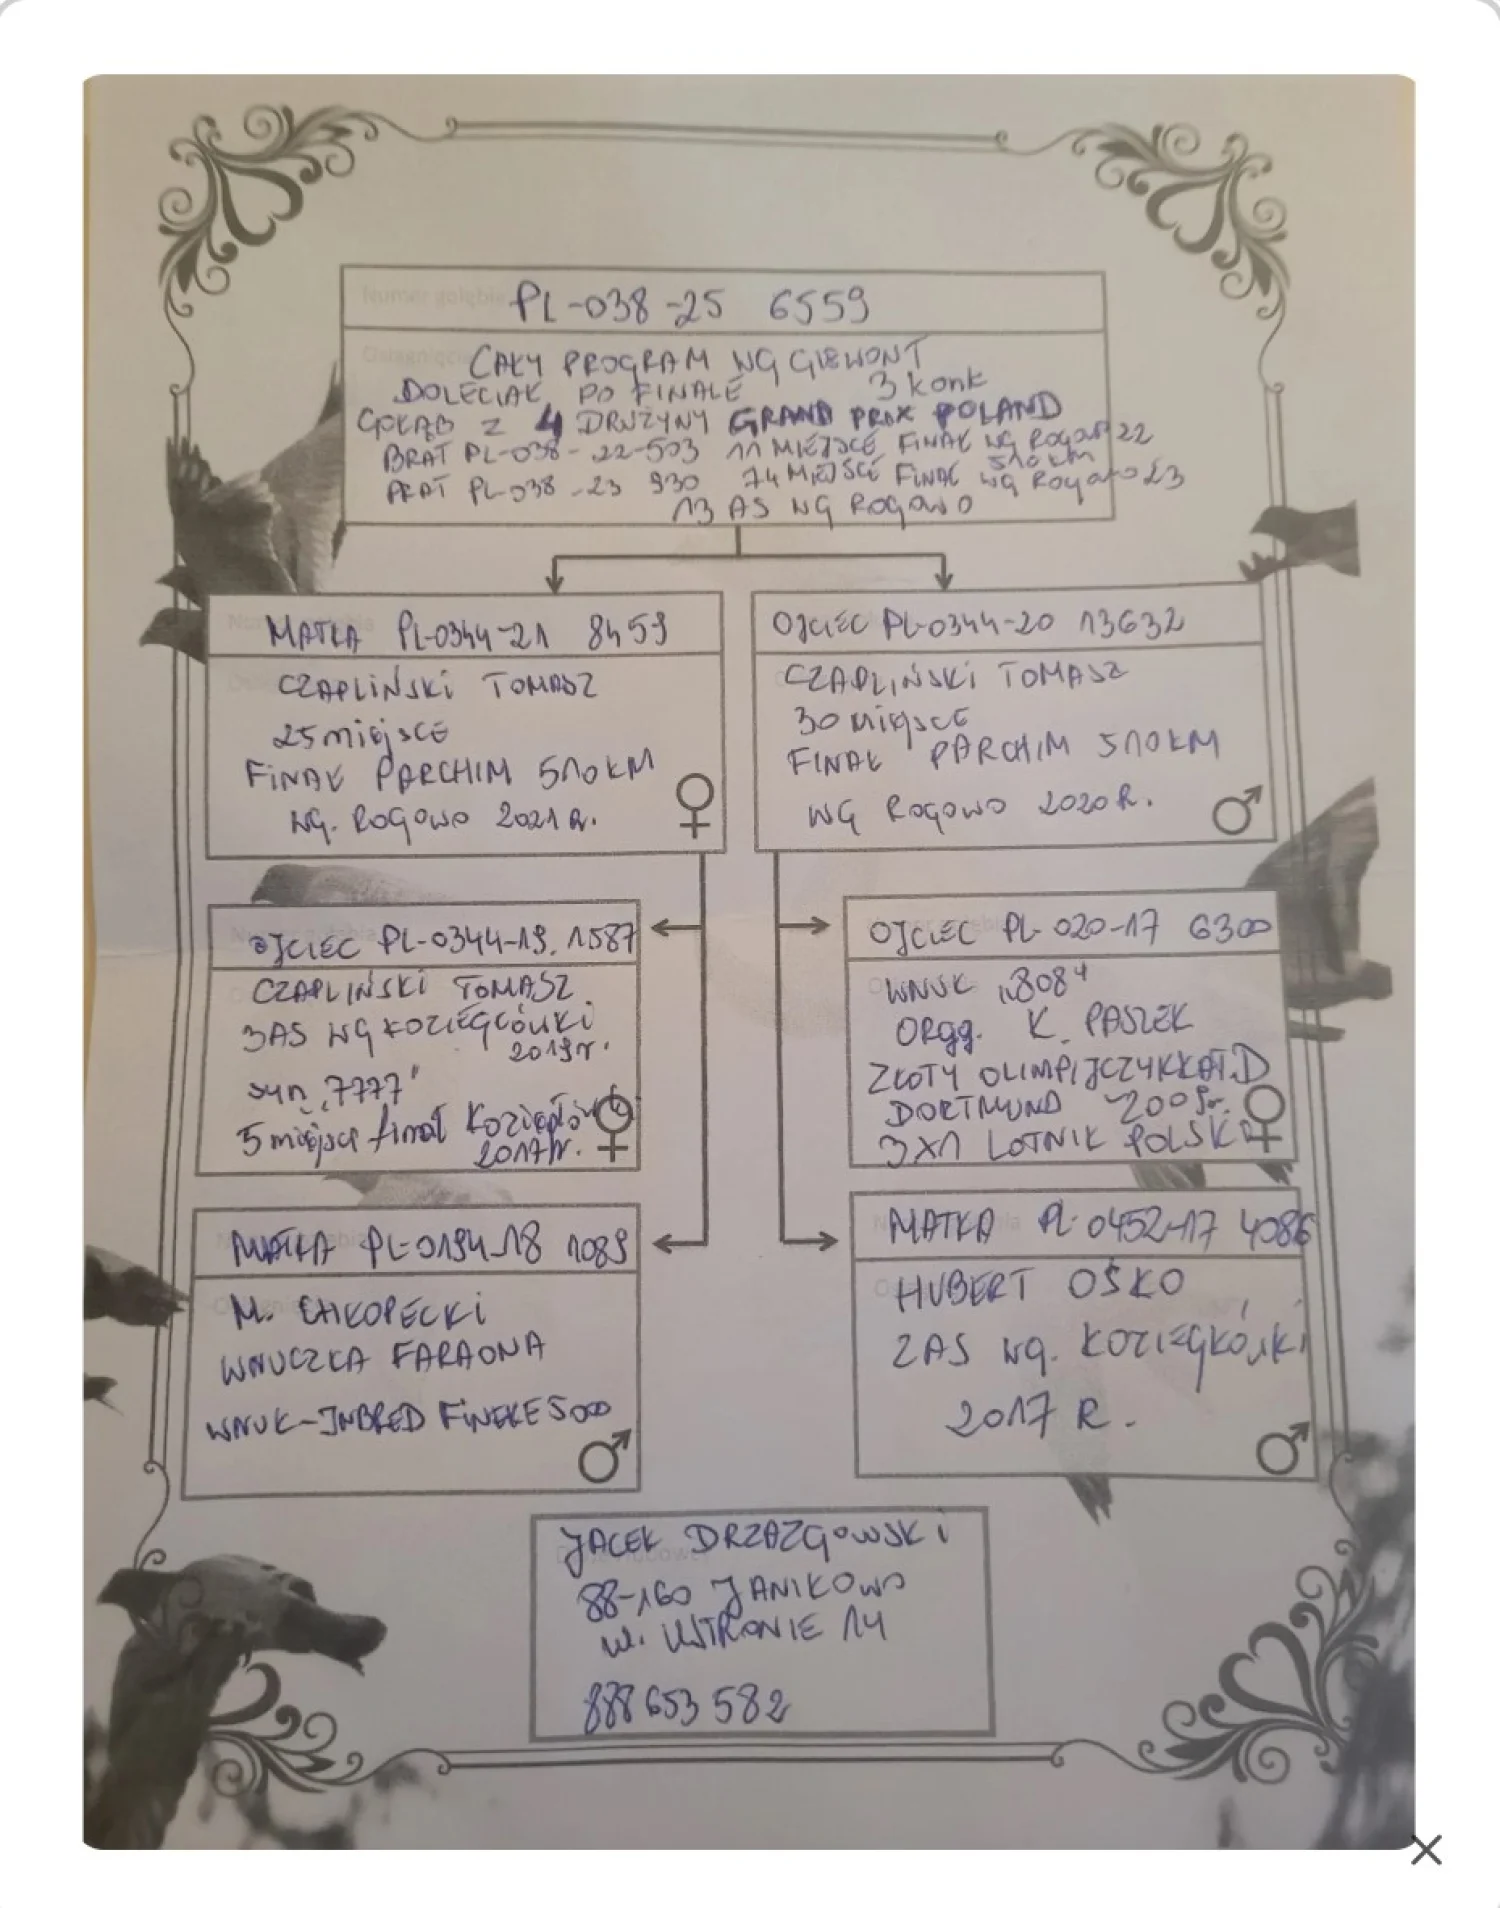 PL-038-25 6559
CAŁY PROGRAM WG GIEWONT
DOLECIAŁ PO FINALE 3 konk
GOŁĄB Z 4 DRUŻYNY GRAND PRIX POLAND
BRAT PL-038-22-503 11 MIEJSCE FINAŁ WG Rogowo 22
510 km
BRAT PL-038-23 930 74 MIEJSCE FINAŁ WG Rogowo 23
13 AS WG ROGOWO
MATKA PL-0344-21 8459
CZAPLIŃSKI TOMASZ
25 miejsce
FINAŁ PARCHIM 510 KM
WG. ROGOWO 2021 R.
OJCIEC PL-0344-20 13632
CZAPLIŃSKI TOMASZ
30 miejsce
FINAŁ PARCHIM 510 KM
WG ROGOWO 2020 R.
OJCIEC PL-0344-19. 1587
CZAPLIŃSKI TOMASZ
3AS WG KOZIEGŁÓWKI
2019r.
syn "7777"
5 miejsce finał Koziegłówki
2017r.
OJCIEC PL-020-17 6300
WNUK "808"
ORgg. K. PASZEK
ZŁOTY OLIMPIJCZYK KAT.D
DORTMUND 2009r.
3X1 LOTNIK POLSKI
MATKA PL-0194-18 1089
M. CHŁOPECKI
WNUCZKA FARAONA
WNUK-INBRED FINEKE 5000
MATKA PL-0452-17 4086
HUBERT OŚKO
2AS WG. KOZIEGŁÓWKI
2017 R.
JACEK DRZAZGOWSKI
88-160 JANIKOWO
ul. USTRONIE 14
888 653 582